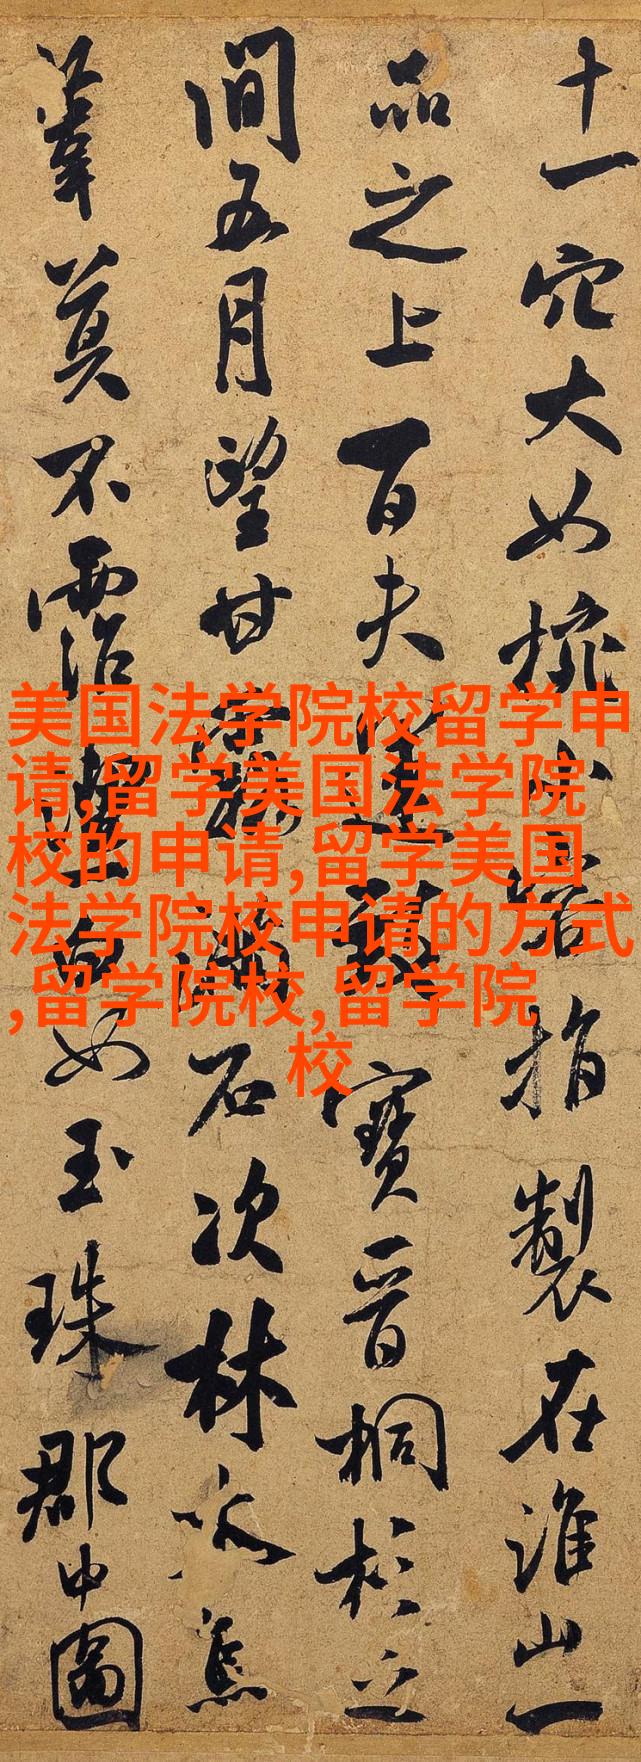 十一穴大如椀小容指製在淮山一
品之上百夫運致寶晉桐杉之
間五月望甘露滿石次林焦
葦莫不霑潔白如玉珠郡中圖
美国法学院校留学申
请,留学美国法学院
校的申请,留学美国
法学院校申请的方式
,留学院校,留学院
校